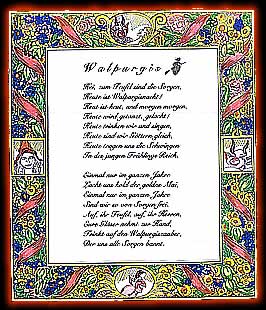 Walpurgis
Hei, zum Teufel sind die Sorgen,
Heute ist Walpurgisnacht!
Heut ist heut, und morgen morgen,
Heute wird getanzt, gelacht!
Heute trinken wir und singen,
Heute sind wir Göttern gleich,
Heute tragen uns die Schwingen
In den jungen Frühlings Reich.
Einmal nur im ganzen Jahre
Lacht uns hold der goldne Mai,
Einmal nur im ganzen Jahre
Sind wir so von Sorgen frei.
Auf, ihr Teufel, auf, ihr Hexen,
Eure Gläser nehmt zur Hand,
Trinkt auf den Walpurgiszauber,
Der uns alle Sorgen bannt.